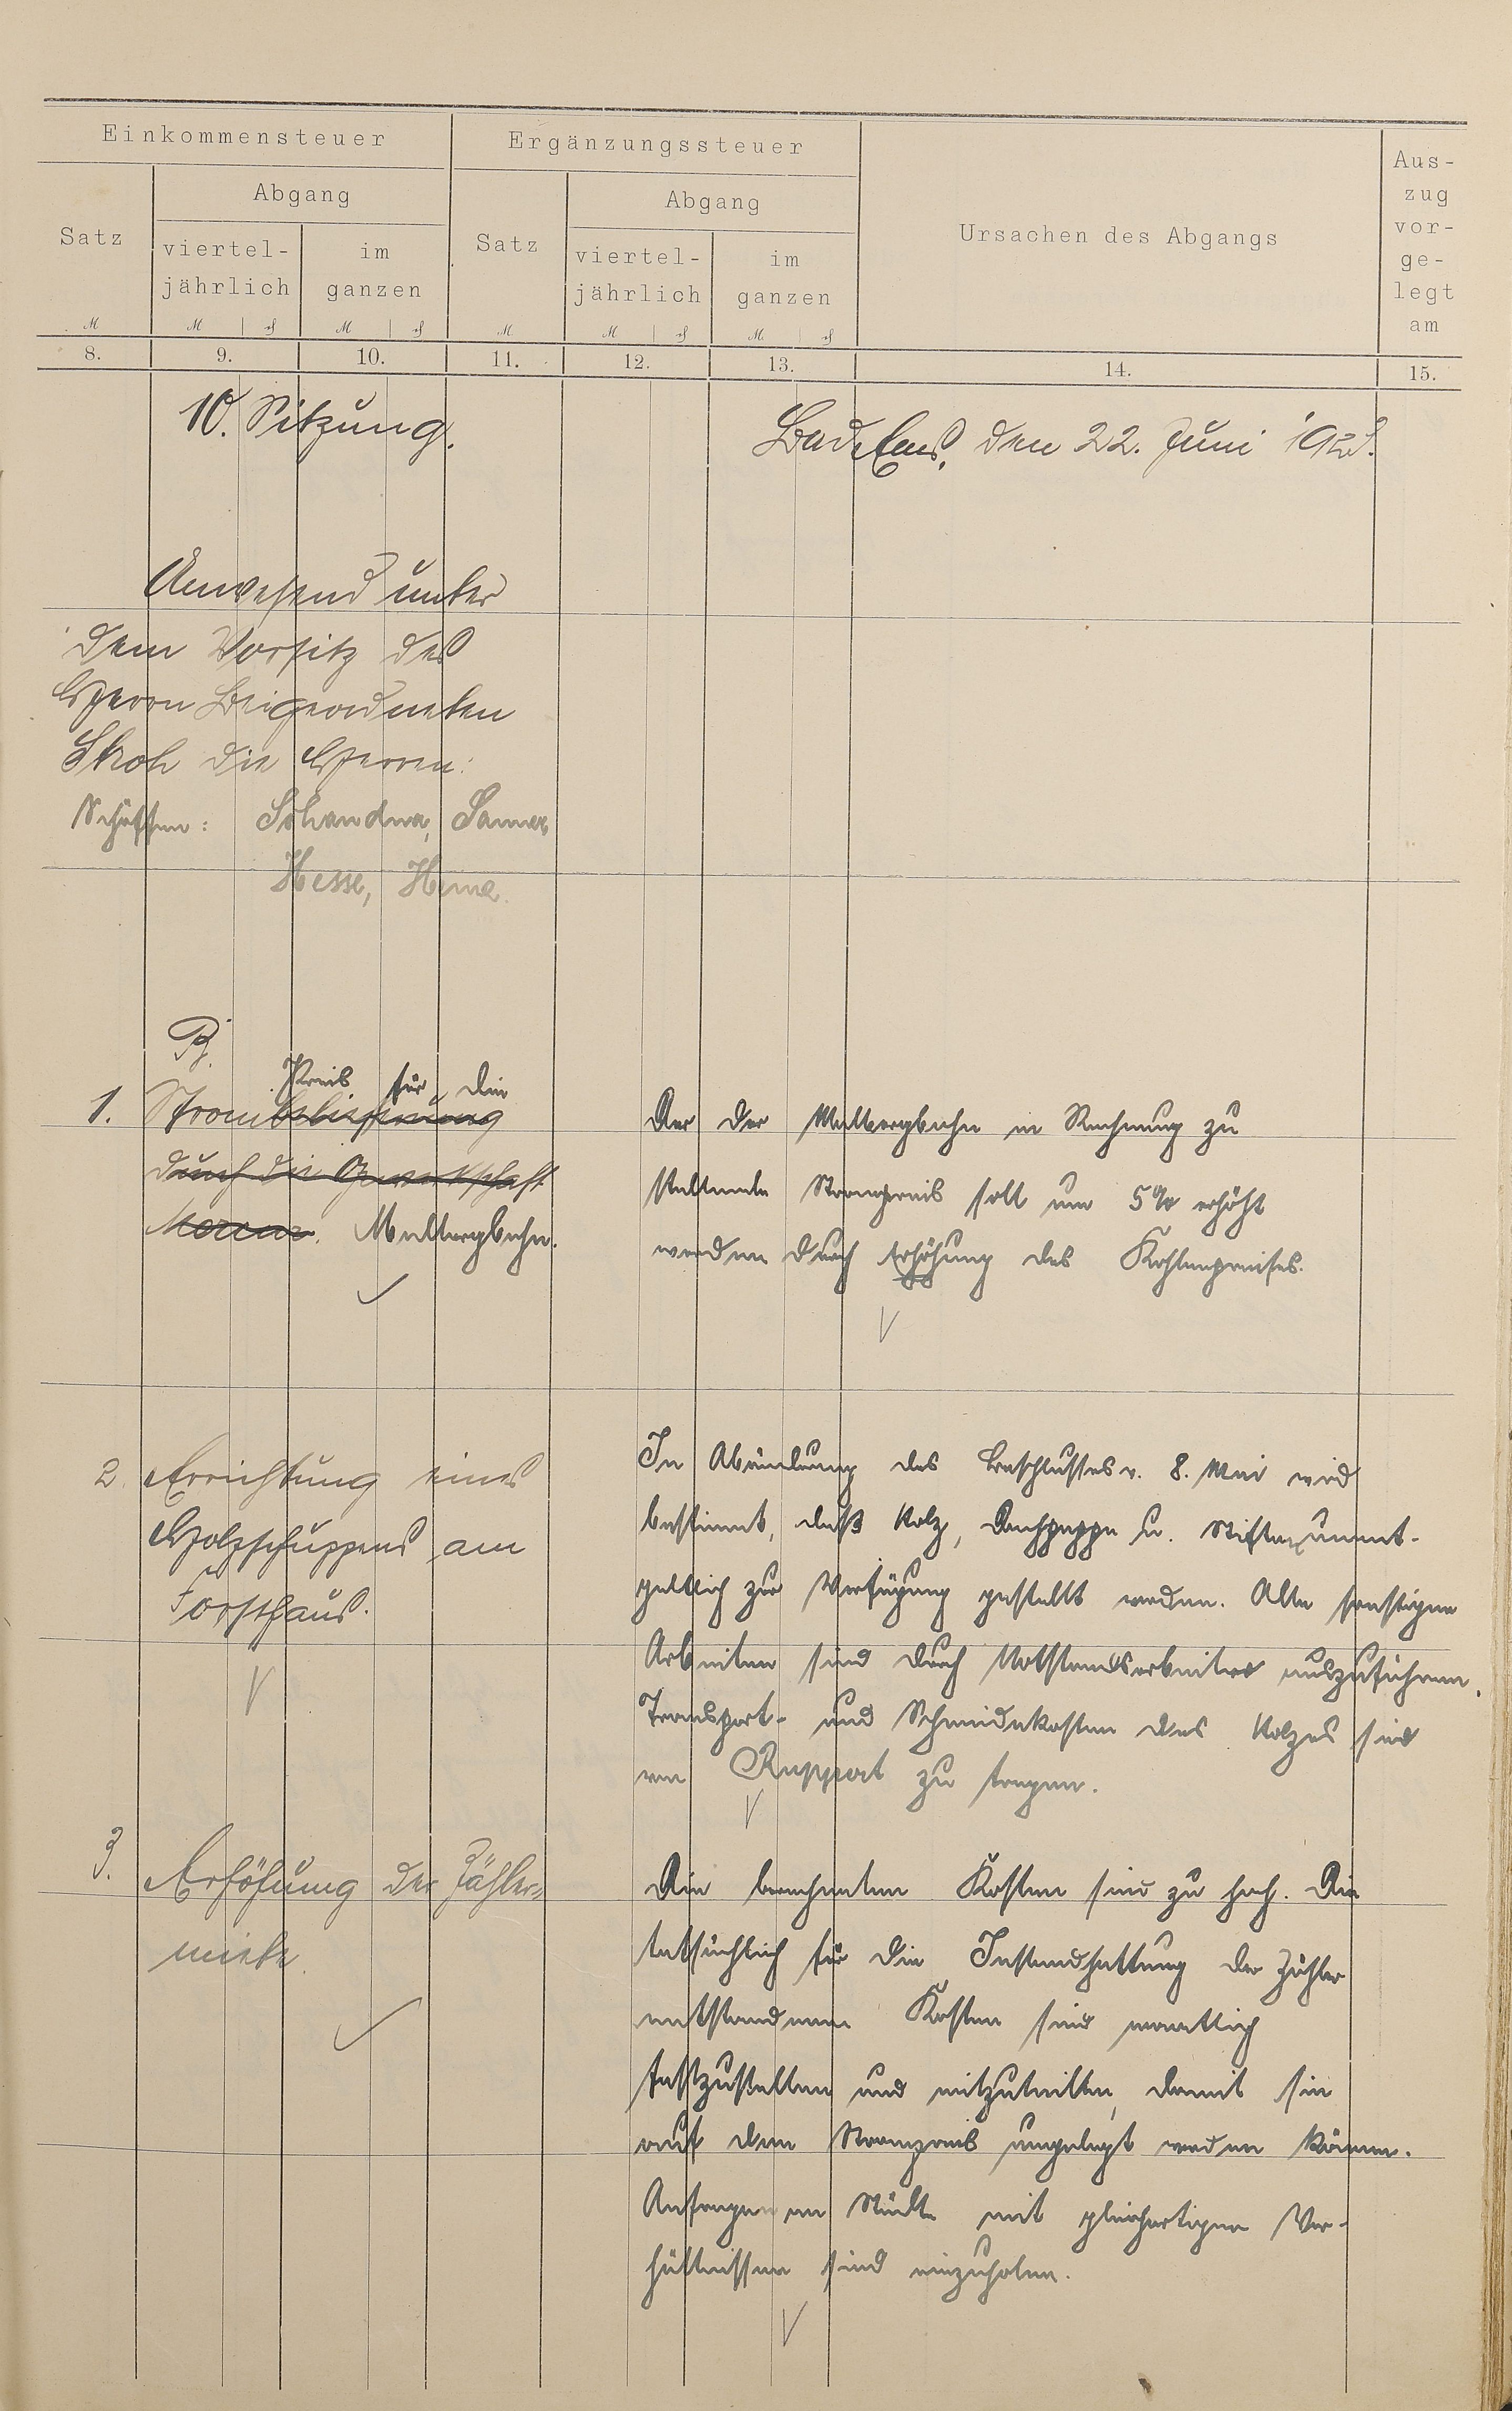 Einkommensteuer
Ergänzungssteuer
Ursachen des Abgangs
Aus-
zug
vor-
ge-
legt
am
Satz
Abgang
viertel-
jährlich
im
ganzen
Satz
Abgang
viertel-
jährlich
im
ganzen
M
M
M
M
M
M
8.
9.
10.
11.
12.
13.
14.
15.
10. Sitzung.
Bad Ems, den 22. Juni
Anwesend unter
dem Vorsitz des
Herrn Beigeordneten
Stroh die Herren:
Schöffen: Schandua, Sauer
Hesse,
B.
Preis für die
1. Strombelieferung
durch die Gewerkschaft
Malbergbahn.
Der der Malbergbahn in Rechnung zu
stellende Strompreis soll um 5% erhöht
werden durch Erhöhung des Kohlenpreises.
2. Errichtung eines
Holzschuppens am
Forsthaus.
In Abänderung des Beschlusses v. 8. Mai wird
bestimmt, daß Holz, Dachpappe u. Stifte unent-
geltlich zur Verfügung gestellt werden. Alle sonstigen
Arbeiten sind durch Notstandsarbeiter auszuführen.
Transport- und Schneidekosten des Holzes sind
von Ruppert zu tragen.
3. Erhöhung der Zähler-
miete.
Die berechneten Kosten sind zu hoch. Die
tatsächlich für die Instandhaltung der Zähler
entstandenen Kosten sind monatlich
festzustellen und mitzuteilen, damit sie
auf den Strompreis umgelegt werden können.
Anfragen an Städte mit gleichartigen Ver-
hältnissen sind einzuholen.